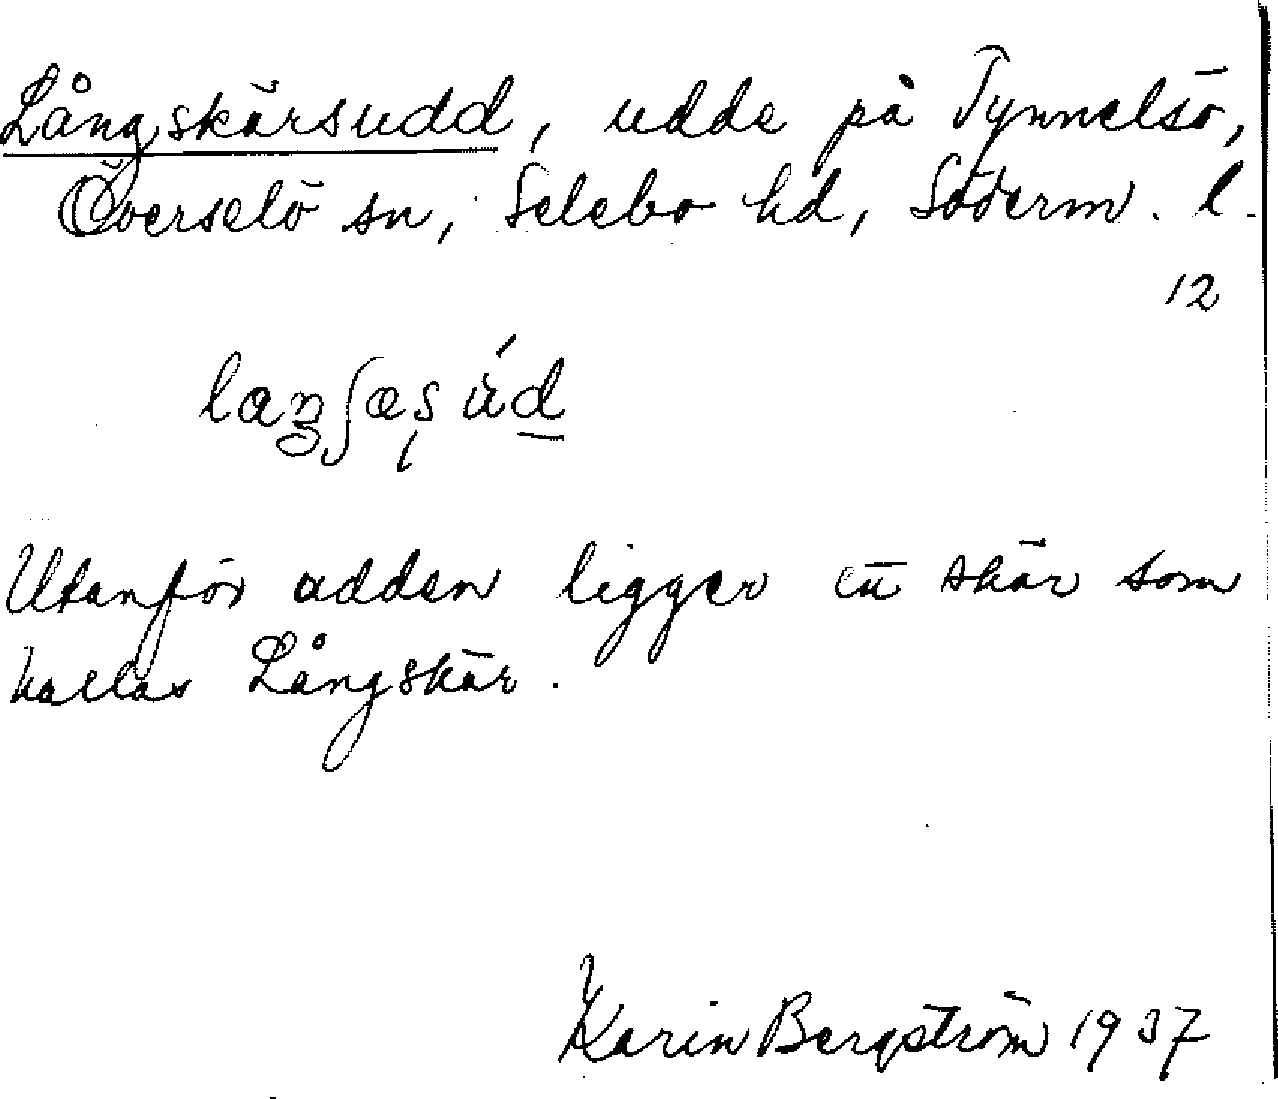 Långskärsudd, udde på Tynnelsö,
Överselö sn, Selebo hd, Söderm. l.
12
laŋʃæsúd
Utanför udden ligger ett skär som
kallas Långskär.
Karin Bergström 1937